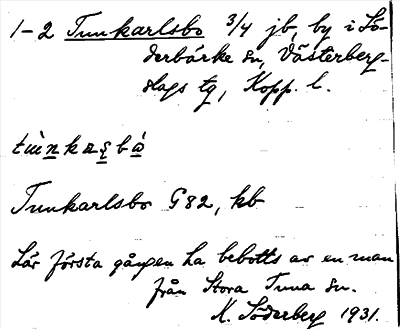 1-2 Tunkarlsbo 3/4 jb, by i Sö-
derbärke sn, Västerberg-
slags tg, Kopp. l.
Tunkarlsbo G82, kb
Lär första gången ha bebotts av en man
från Stora Tuna sn.
K. Söderberg 1931.